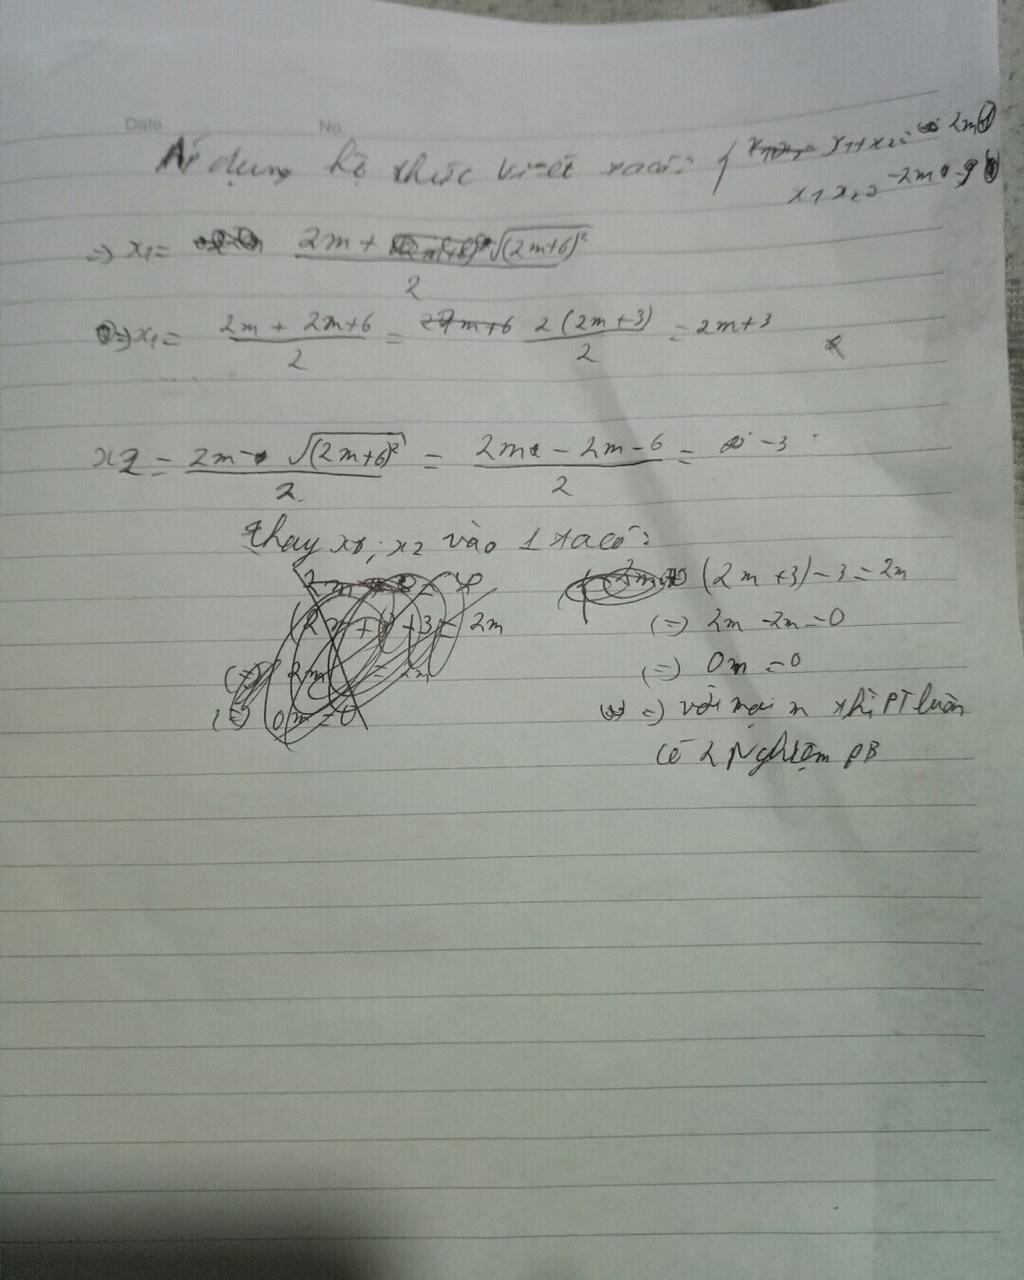 Date No.
Áp dụng hệ thức vi-ét ta có: { x1+x2= 2m
x1x2= -2m.-9
=> x1= 2m + √(2m+6)² / 2
=> x1= 2m + 2m+6 / 2 = 2(2m+3) / 2 = 2m+3
x2 = 2m - √(2m+6)² / 2 = 2m - 2m - 6 / 2 = -3
thay x1; x2 vào 1 ta có:
(2m+3)-3=2m
(=) 2m-2m=0
(=) 0m=0
=) với mọi m thì PT luôn
có 2 Nghiệm PB